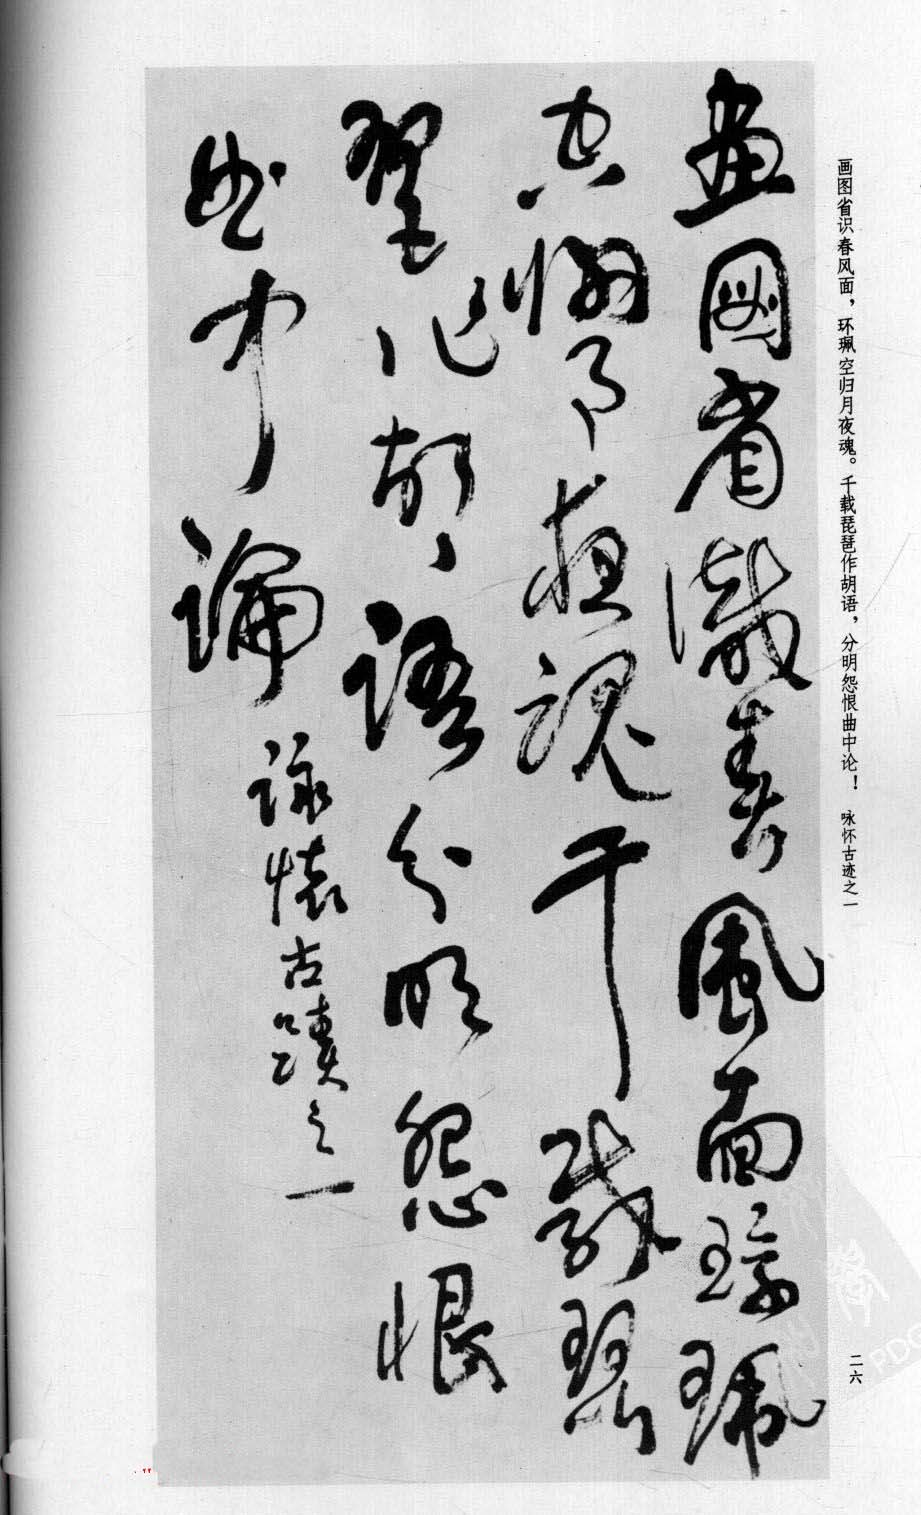 画图省识春风面，环珮空归月夜魂。千载琵琶作胡语，分明怨恨曲中论！ 咏怀古迹之一
二六
畫圖省識春風面環珮
空歸月夜魂千載琵
琶作胡語分明怨恨
曲中論
詠懷古蹟之一